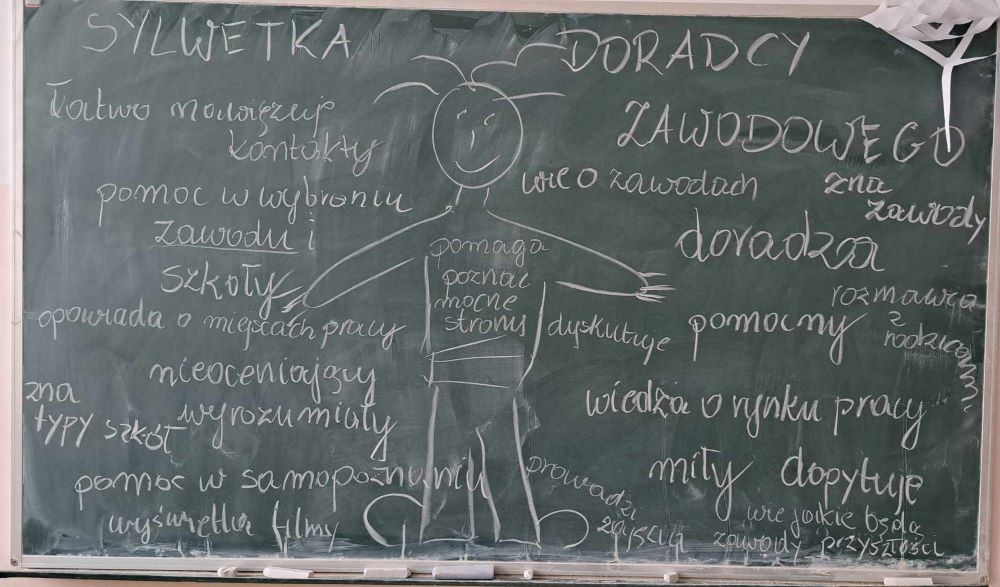 SYLWETKA DORADCY
ZAWODOWEGO
łatwo nawiązuje
kontakty
pomoc w wybraniu
zawodu i
szkoły
opowiada o miejscach pracy
nieoceniający
wyrozumiały
zna
typy szkół
pomoc w samopoznaniu
wyświetla filmy
pomaga
poznać
mocne
strony
wie o zawodach
zna
zawody
doradza
rozmawia
z
rodzicami
dyskutuje
pomocny
wiedza o rynku pracy
miły
dopytuje
prowadzi
zajęcia
wie jakie będą
zawody przyszłości